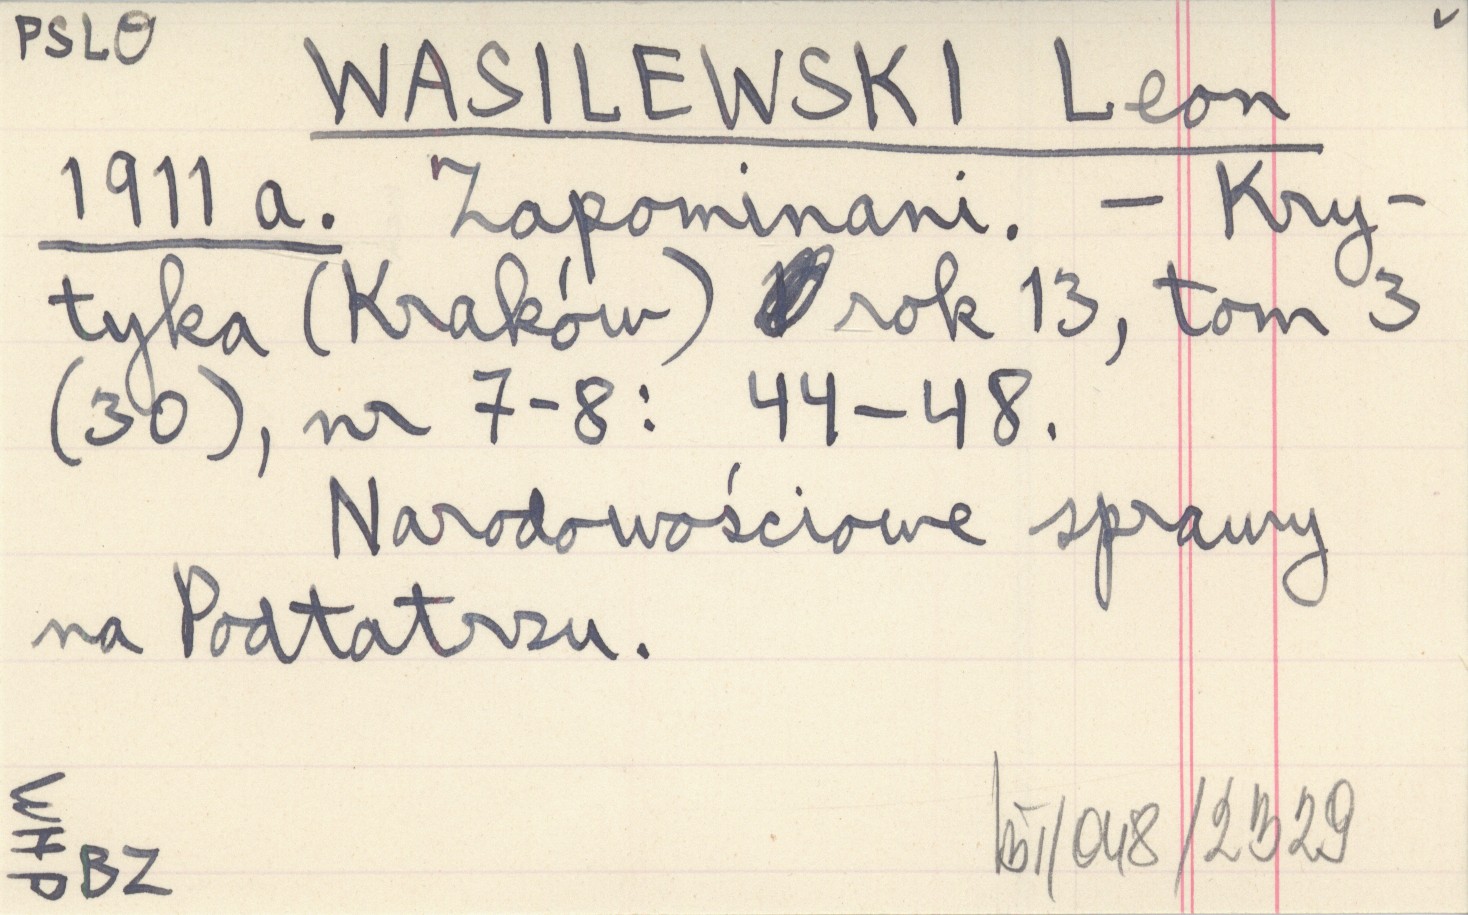 PSLO
WASILEWSKI Leon
1911 a. Zapominani. – Kry-
tyka (Kraków) rok 13, tom 3
(30), nr 7-8: 44–48.
Narodowościowe sprawy
na Podtatrzu.
WHP
BZ
/048/2329